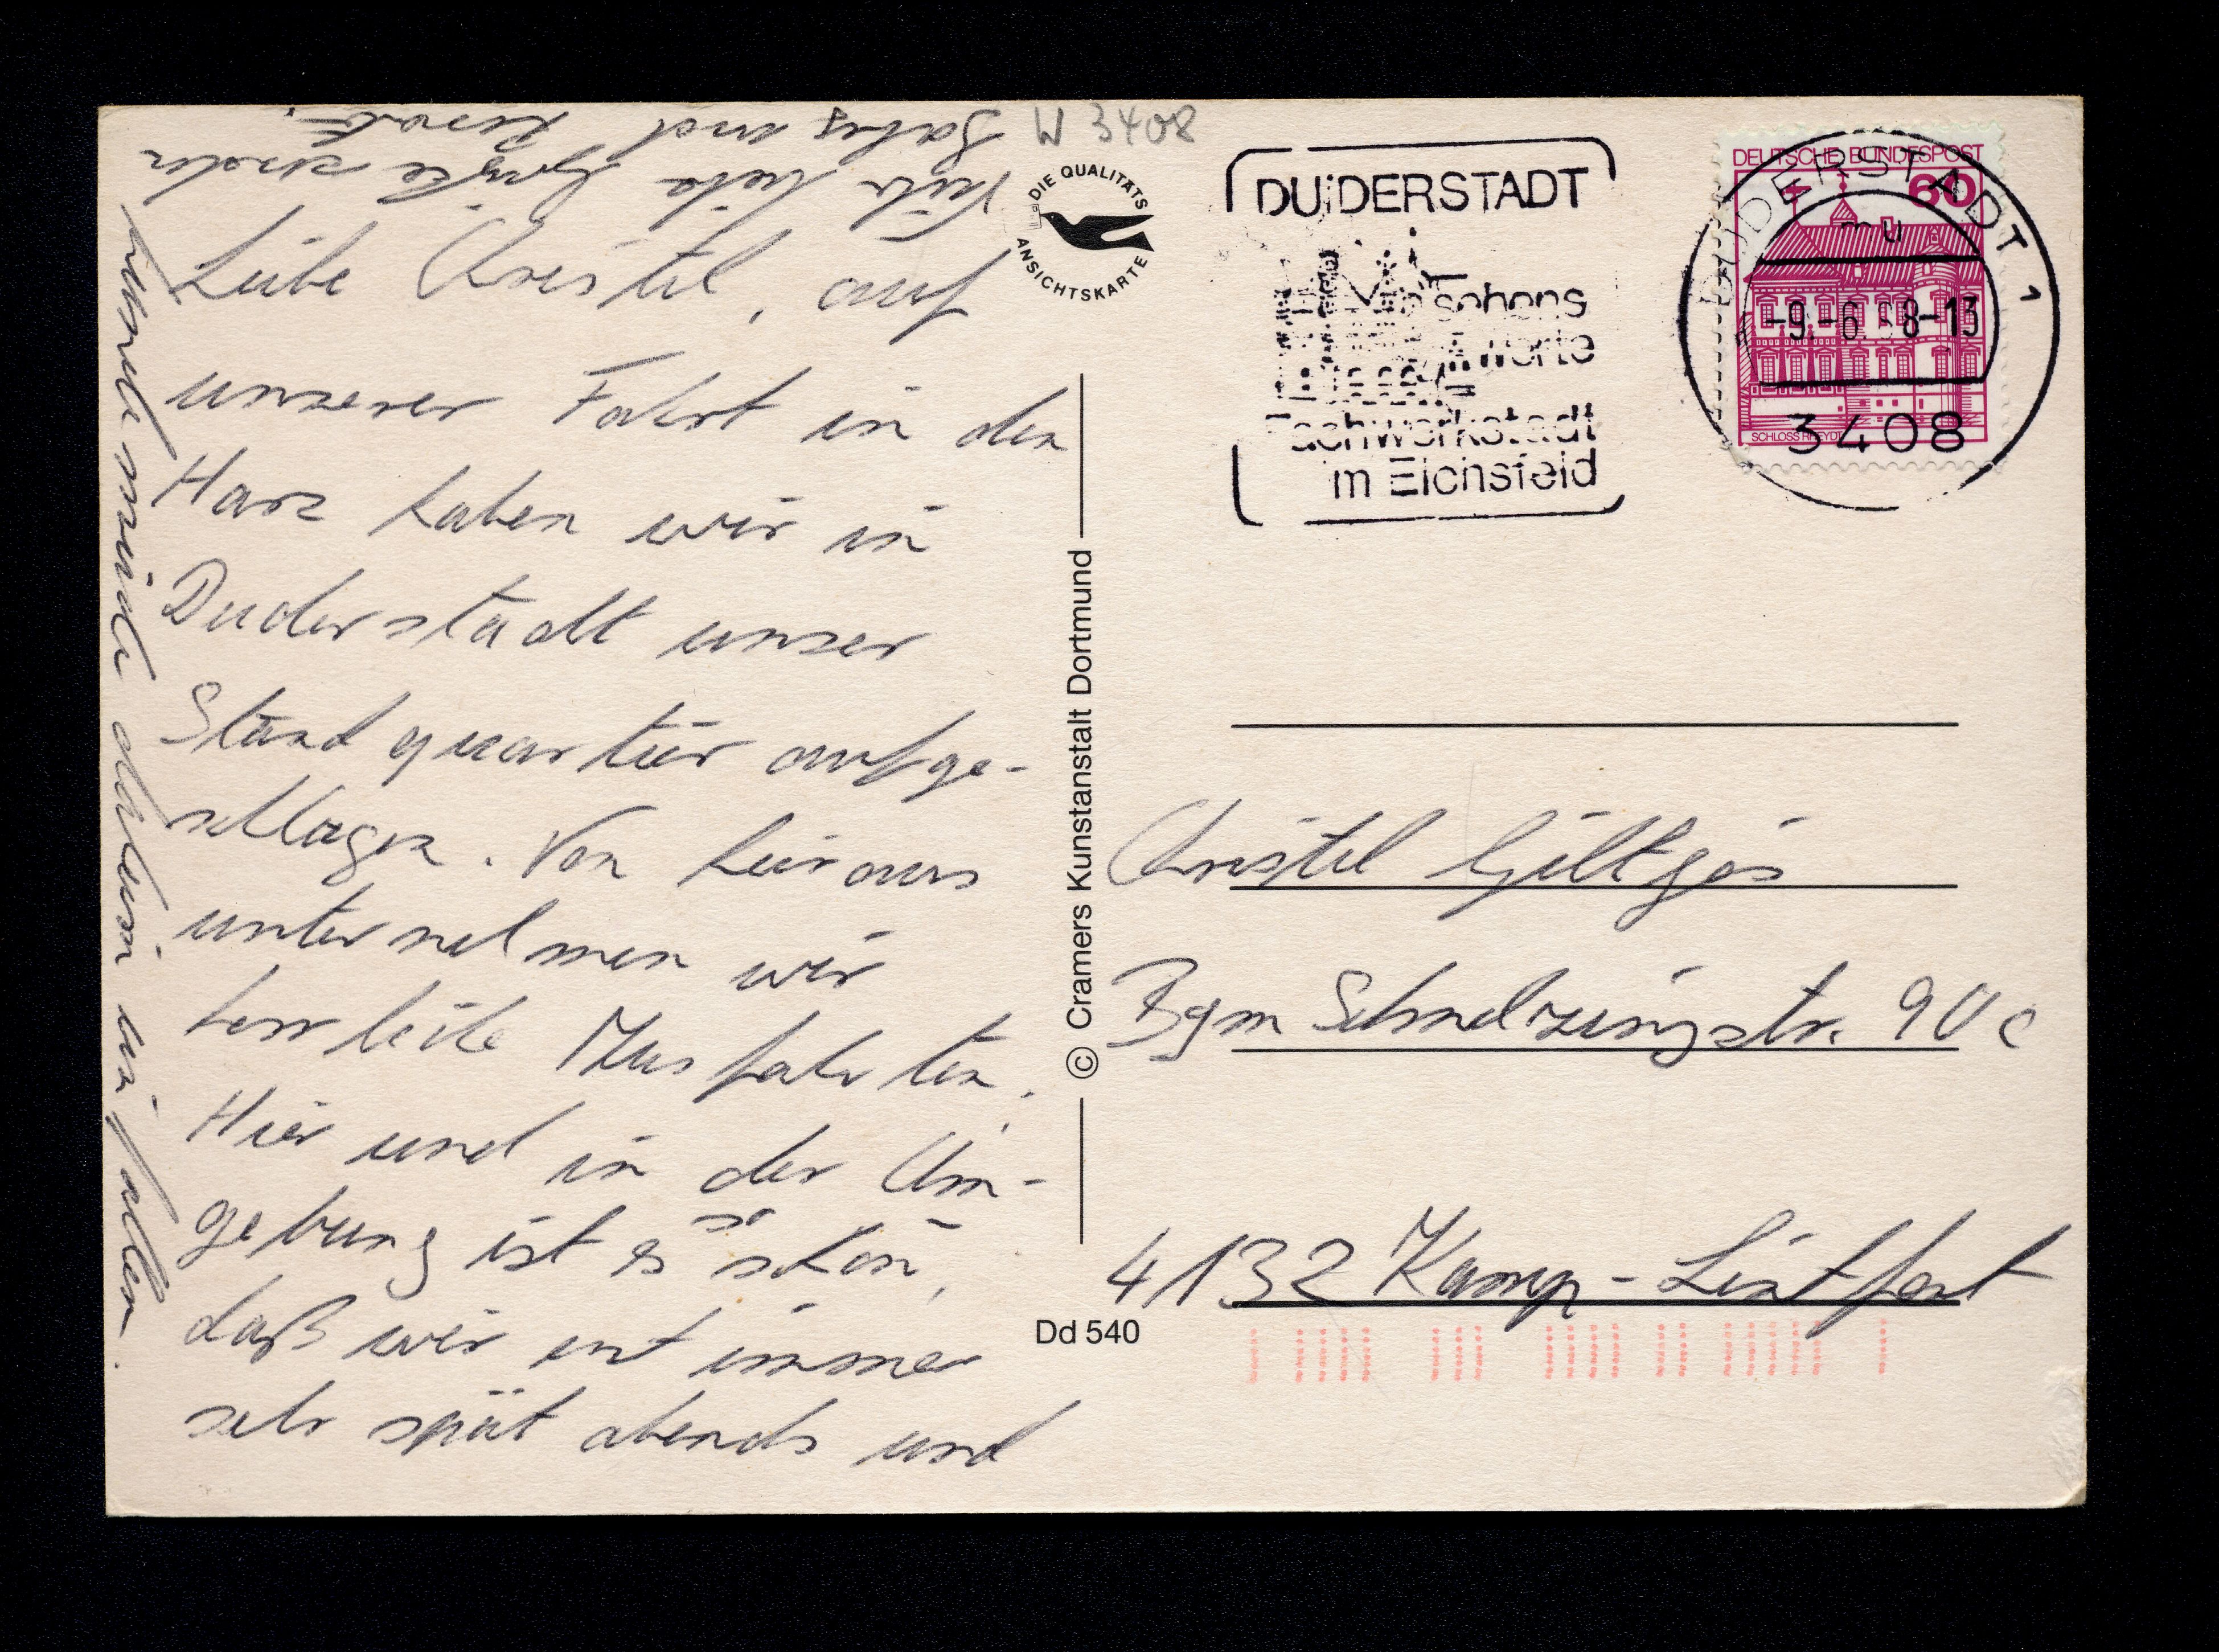 Liebe Christel, auf
unserer Fahrt in den
Harz haben wir in
Duderstadt unser
Standquartier aufge-
schlagen. Von hier aus
unternehmen wir
herrliche Ausfahrten.
Hier und in der Um-
gebung ist es so schön,
daß wir erst immer
sehr spät abends und
hundemüde ins fallen.
Viele liebe Grüße senden
und
W 3408
DIE QUALITÄTS
ANSICHTSKARTE
© Cramers Kunstanstalt Dortmund
Dd 540
DUDERSTADT
Fachwerkstadt
im Eichsfeld
DEUTSCHE BUNDESPOST
60
SCHLOSS RHEYDT
DUDERSTADT 1
mu
-9.-6. 8-13
3408
Christel Giltges
Bgm Schmelzingstr. 90 c
4132 Kamp-Lintfort